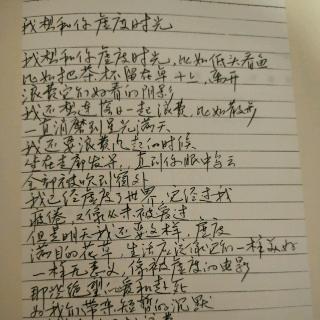 我想和你虚度时光
我想和你虚度时光,比如低头看鱼
比如把茶杯留在桌子上,离开
浪费它们好看的阴影
我还想连落日一起浪费,比如散步
一直消磨到星光满天
我还要浪费风起的时候
坐在走廊发呆,直到你眼中乌云
全部被吹到窗外
我已经虚度了世界,它经过我
疲倦,又像从未被爱过
但是明天我还要这样,虚度
满目的花草,生活应该像它们一样美好
一样无意义,像被虚度的电影
那些绝望的爱和赴死
为我们带来短暂的沉默